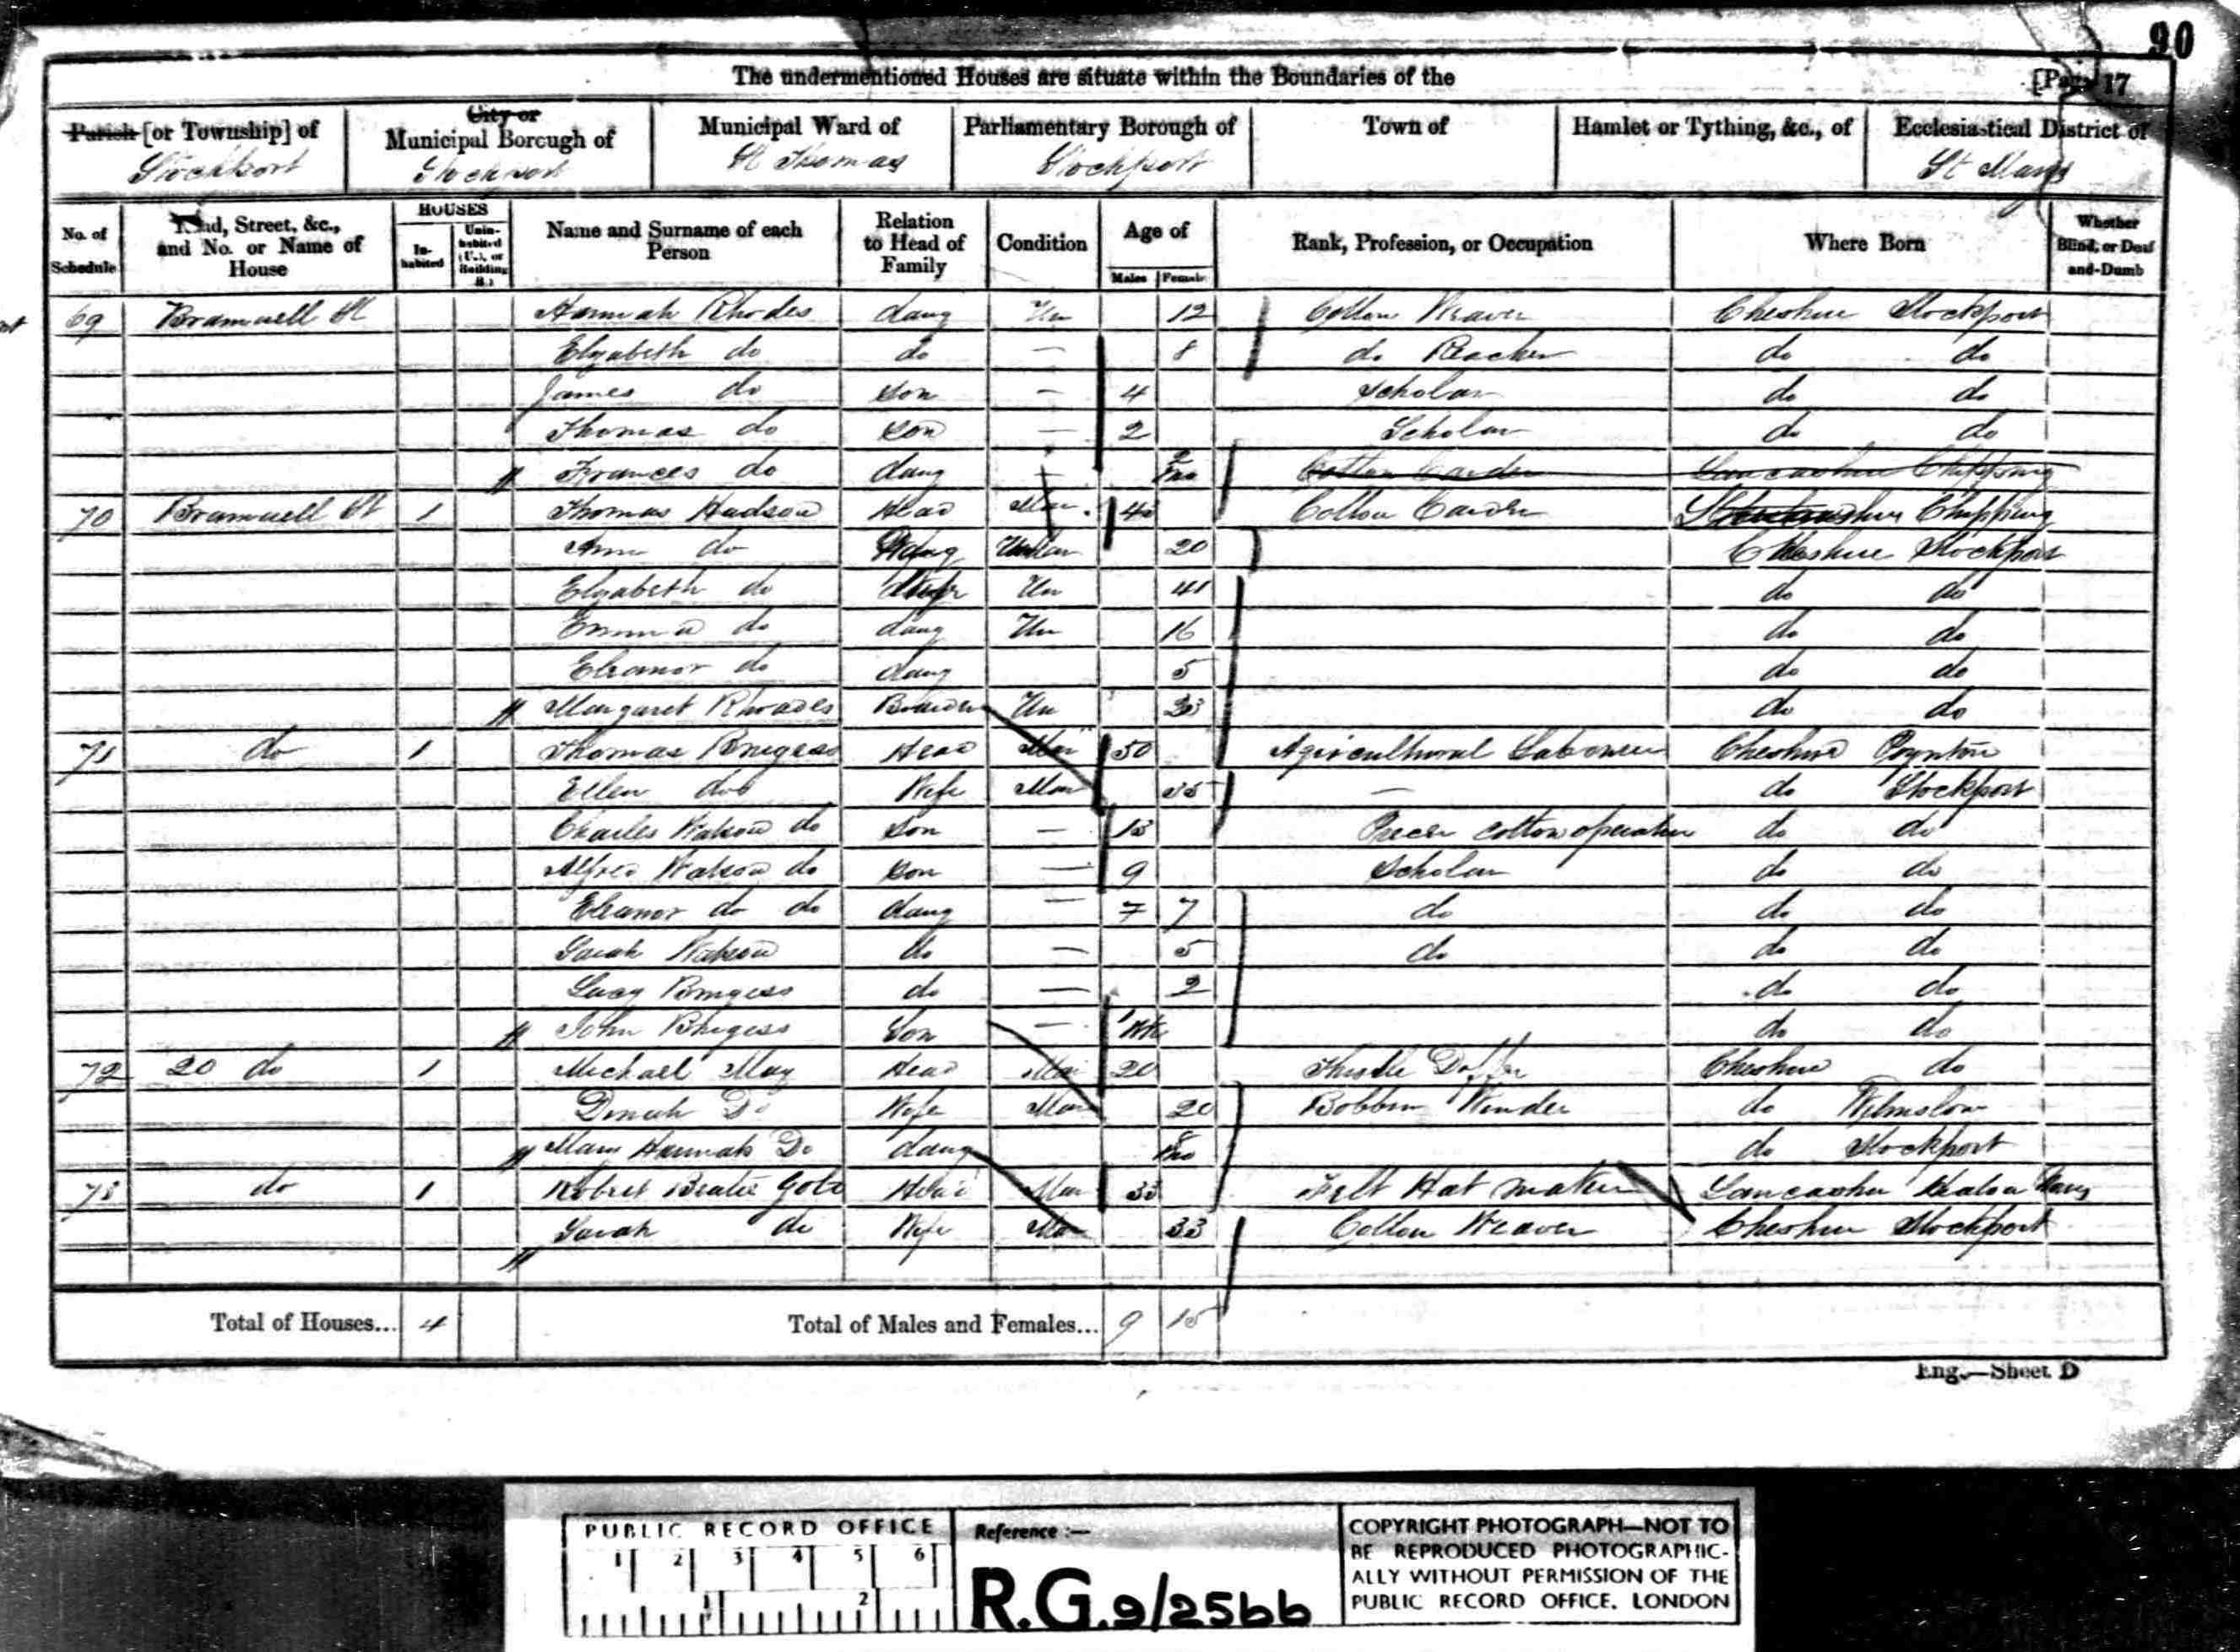 90
The undermentioned Houses are situate within the Boundaries of the
[Page 17
Parish [or Township] of
Stockport
City or Municipal Borough of
Stockport
Municipal Ward of
St Thomas
Parliamentary Borough of
Stockport
Town of
Hamlet or Tything, &c., of
Ecclesiastical District of
St Marys
No. of Schedule
Road, Street, &c., and No. or Name of House
HOUSES
In-habited
Unin-habited (U.), or Building (B.)
Name and Surname of each Person
Relation to Head of Family
Condition
Age of
Males
Females
Rank, Profession, or Occupation
Where Born
Whether Blind, or Deaf-and-Dumb
69 Bramwell St Hannah Rhodes daug Un 12 Cotton Weaver Cheshire Stockport
Elizabeth do do — 8 do Reacher do do
James do Son — 4 Scholar do do
Thomas do Son — 2 Scholar do do
Frances do daug — Mo Cotton Carder Lancashire Chipping
70 Bramwell St 1 Thomas Hudson Head Mar. Cotton Carder Chipping
Ann do daug 20 Cheshire Stockport
Elizabeth do Wife Un 41 do do
Emma do daug Un 16 do do
Eleanor do daug 5 do do
Margaret Rhoades Boarder Un do do
71 do 1 Thomas Burgess Head Mar 50 Agricultural Labourer Cheshire Poynton
Ellen do Wife Mar 35 — do Stockport
Charles Watson do Son — 13 Piecer cotton operative do do
Alfred Watson do Son — 9 Scholar do do
Eleanor do do daug — 7 7 do do do
Sarah Watson do — 5 do do do
Lucy Burgess do — 2 do do
John Burgess Son — do do
72 20 do 1 Michael May Head Mar 20 Throstle Doffer Cheshire do
Dinah Do Wife Mar 20 Bobbin Winder do Wilmslow
Mary Hannah Do daug 8 Mo do Stockport
73 do 1 Robert Head Mar 33 Felt Hat maker Lancashire Heaton
Sarah do Wife Mar 33 Cotton Weaver Cheshire Stockport
Total of Houses... 4
Total of Males and Females... 9 15
Eng.—Sheet D
PUBLIC RECORD OFFICE
1 2 3 4 5 6
1 2
Reference :—
R.G.9/2566
COPYRIGHT PHOTOGRAPH—NOT TO
BE REPRODUCED PHOTOGRAPHIC-
ALLY WITHOUT PERMISSION OF THE
PUBLIC RECORD OFFICE, LONDON